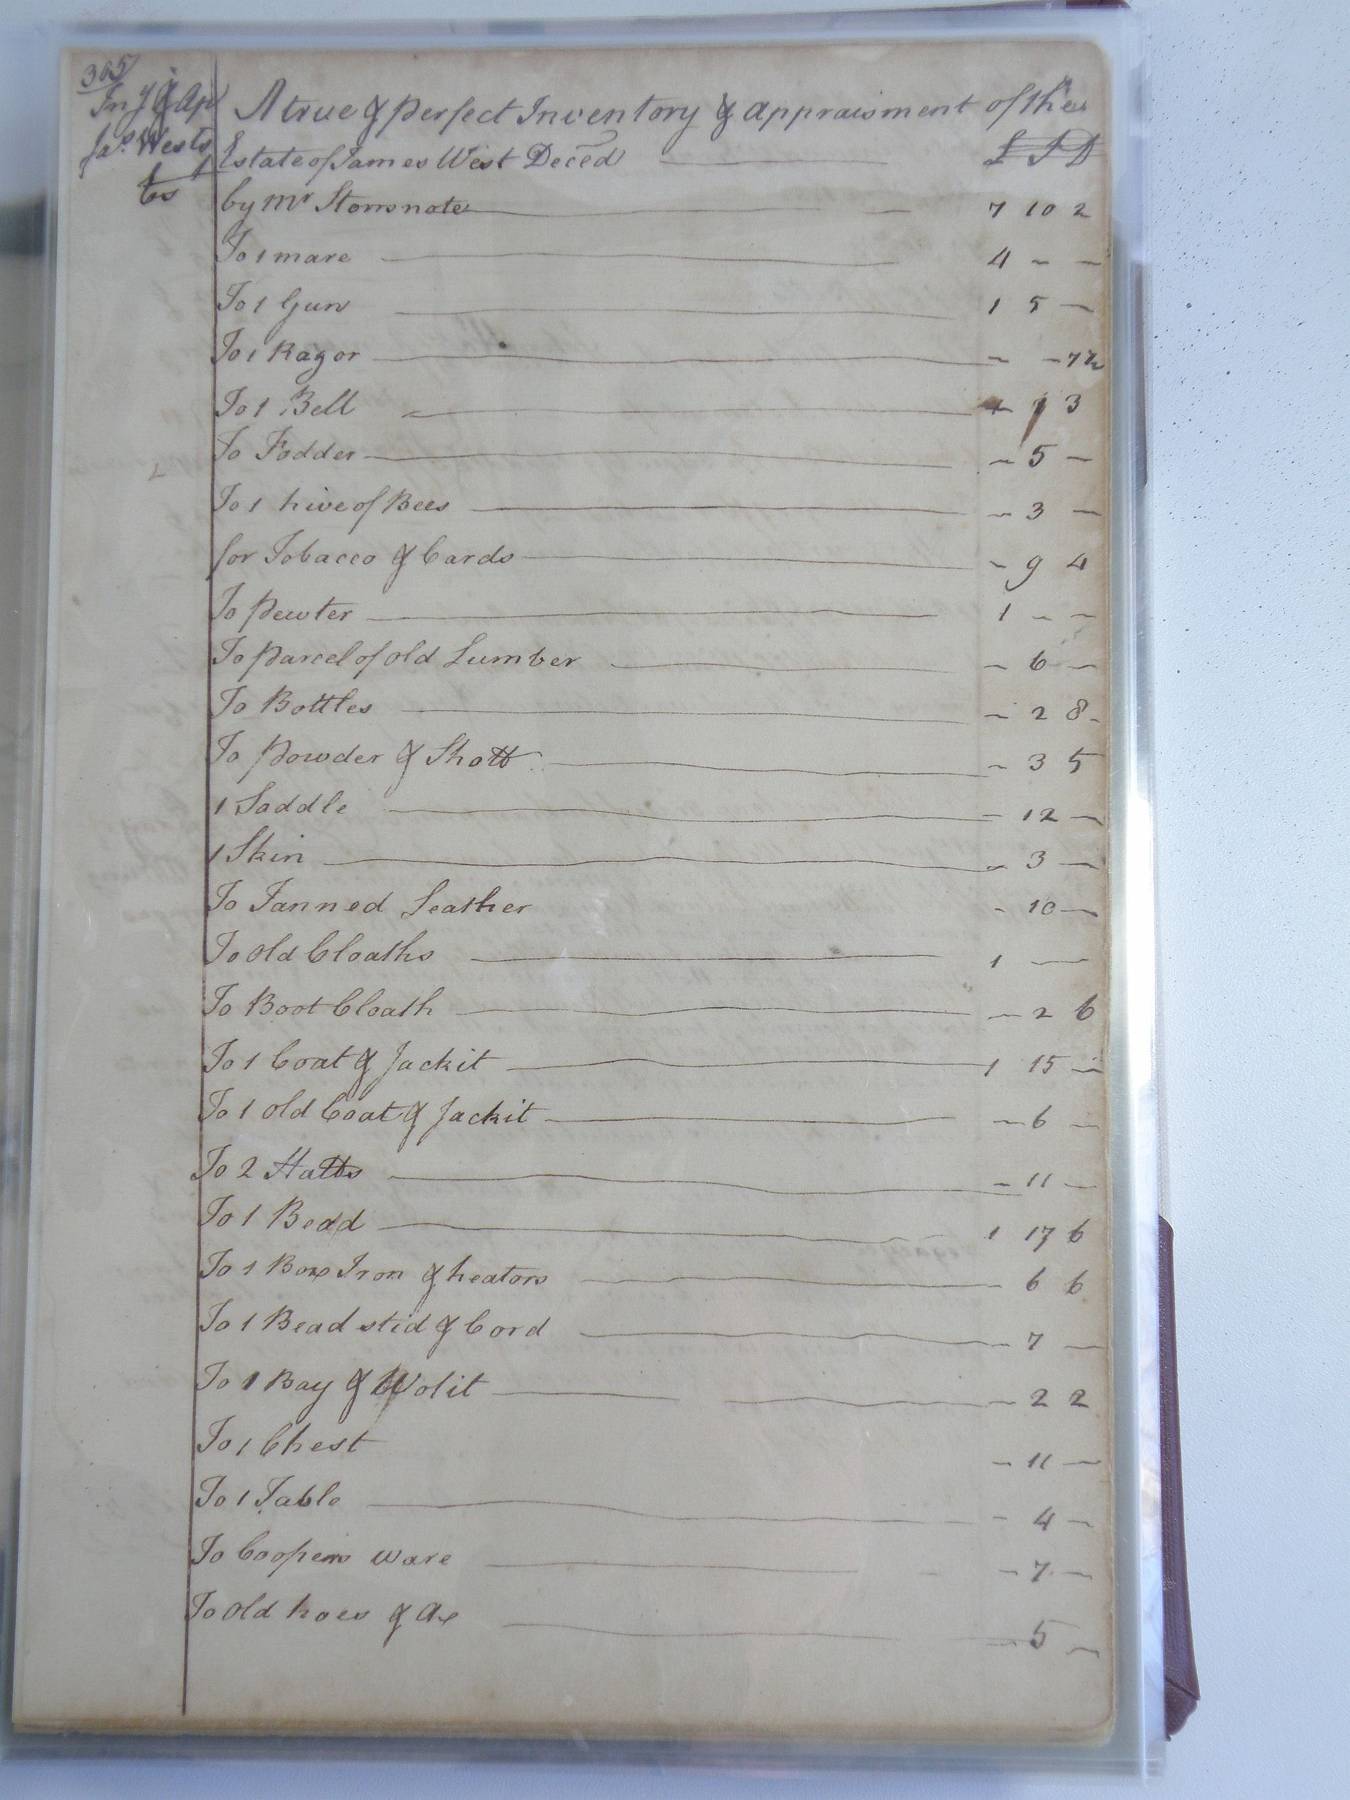 305
Inv & Ap
Jas. Wests
Es
A true & perfect Inventory & appraisment of the
Estate of James West Deced £ S D
by Mr Storrs note 7 10 2
To 1 mare 4 - -
To 1 Gun 1 5 -
To 1 Razor - - 7½
To 1 Bell - 3
To Fodder - 5 -
To 1 hive of Bees - 3 -
for Tobacco & Cards - 9 4
To Pewter 1 - -
To parcel of old Lumber - 6 -
To Bottles - 2 8
To powder & Shott - 3 5
1 Saddle - 12 -
1 Skin - 3 -
To Tanned Leather - 10 -
To old Cloaths 1 -
To Boot Cloath - 2 6
To 1 Coat & Jackit 1 15 -
To 1 old Coat & Jackit - 6 -
To 2 Hatts - 11 -
To 1 Bedd 1 17 6
To 1 Box Iron & heators - 6 6
To 1 Bead stid & Cord - 7 -
To 1 Bag & Wolit - 2 2
To 1 Chest - 11 -
To 1 Table - 4 -
To Coopers ware - 7 -
To old hoes & Ax - 5 -